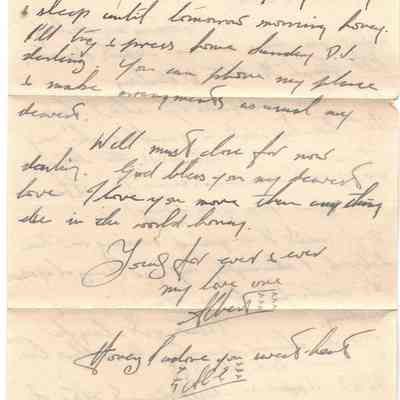 & sleep until tomorrow morning honey.
I'll try & press home Sunday D.J.
darling. You can phone my place
& make arrangements as usual my
dearest.
Well must close for now
darling. God bless you my dearest
love I love you more than anything
else in the world honey.
Yours for ever & ever
my love one
Albert
Honey I adore you sweet-heart